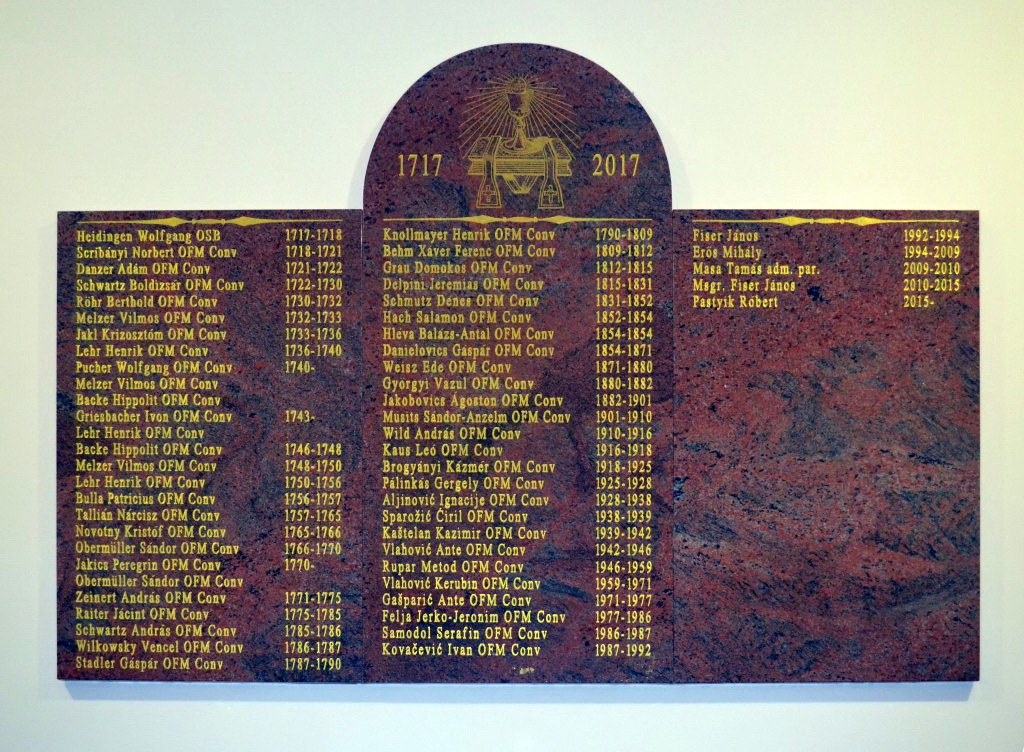 1717 2017
Heidingen Wolfgang OSB 1717-1718
Scribányi Norbert OFM Conv 1718-1721
Danzer Adám OFM Conv 1721-1722
Schwartz Boldizsár OFM Conv 1722-1730
Röhr Berthold OFM Conv 1730-1732
Melzer Vilmos OFM Conv 1732-1733
Jakl Krizosztóm OFM Conv 1733-1736
Lehr Henrik OFM Conv 1736-1740
Pucher Wolfgang OFM Conv 1740-
Melzer Vilmos OFM Conv
Backe Hippolit OFM Conv
Griesbacher Ivon OFM Conv 1743-
Lehr Henrik OFM Conv
Backe Hippolit OFM Conv 1746-1748
Melzer Vilmos OFM Conv 1748-1750
Lehr Henrik OFM Conv 1750-1756
Bulla Patricius OFM Conv 1756-1757
Tallián Nárcisz OFM Conv 1757-1765
Novotny Kristóf OFM Conv 1765-1766
Obermüller Sándor OFM Conv 1766-1770
Jakics Peregrin OFM Conv 1770-
Obermüller Sándor OFM Conv
Zeinert András OFM Conv 1771-1775
Raiter Jácint OFM Conv 1775-1785
Schwartz András OFM Conv 1785-1786
Wilkowsky Vencel OFM Conv 1786-1787
Stadler Gáspár OFM Conv 1787-1790
Knollmayer Henrik OFM Conv 1790-1809
Behm Xáver Ferenc OFM Conv 1809-1812
Grau Domokos OFM Conv 1812-1815
Delpini Jeremiás OFM Conv 1815-1831
Schmutz Dénes OFM Conv 1831-1852
Hach Salamon OFM Conv 1852-1854
Hleva Balázs-Antal OFM Conv 1854-1854
Danielovics Gáspár OFM Conv 1854-1871
Weisz Ede OFM Conv 1871-1880
Györgyi Vazul OFM Conv 1880-1882
Jakobovics Ágoston OFM Conv 1882-1901
Musits Sándor-Anzelm OFM Conv 1901-1910
Wild András OFM Conv 1910-1916
Kaus Leó OFM Conv 1916-1918
Brogyányi Kázmér OFM Conv 1918-1925
Pálinkás Gergely OFM Conv 1925-1928
Aljinović Ignacije OFM Conv 1928-1938
Sparožić Ćiril OFM Conv 1938-1939
Kaštelan Kazimir OFM Conv 1939-1942
Vlahović Ante OFM Conv 1942-1946
Rupar Metod OFM Conv 1946-1959
Vlahović Kerubin OFM Conv 1959-1971
Gašparić Ante OFM Conv 1971-1977
Felja Jerko-Jeronim OFM Conv 1977-1986
Samodol Serafin OFM Conv 1986-1987
Kovačević Ivan OFM Conv 1987-1992
Fiser János 1992-1994
Erős Mihály 1994-2009
Masa Tamás adm. par. 2009-2010
Msgr. Fiser János 2010-2015
Pastyik Róbert 2015-